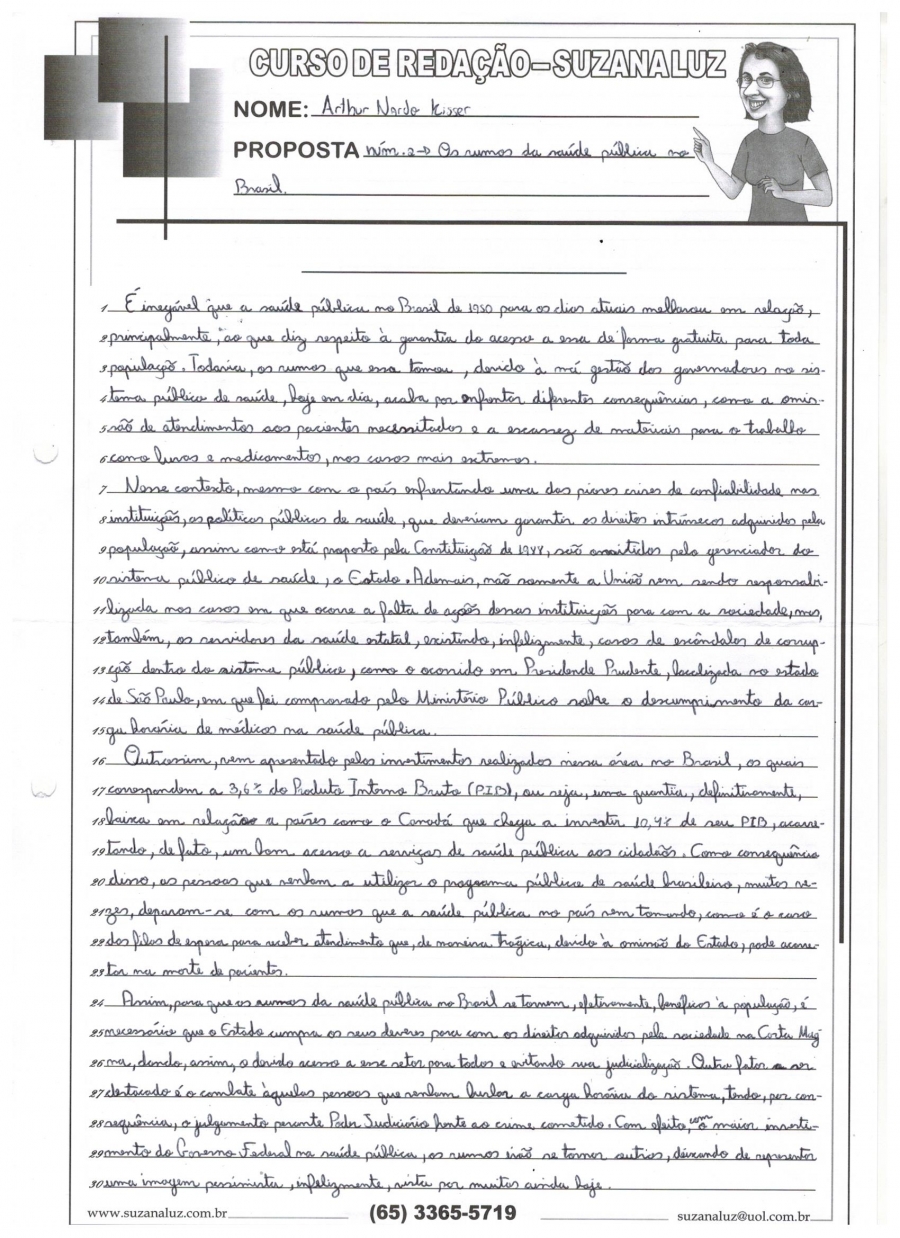 CURSO DE REDAÇÃO–SUZANA LUZ
NOME: Arthur Nardo Kisser
PROPOSTA Núm. 2 → Os rumos da saúde pública no
Brasil.
1 É inegável que a saúde pública no Brasil de 1950 para os dias atuais melhorou em relação,
2 principalmente, ao que diz respeito à garantia do acesso a essa de forma gratuita para toda
3 população. Todavia, os rumos que essa tomou, devido à má gestão dos governadores no sis-
4 tema público de saúde, hoje em dia, acaba por enfrentar diferentes consequências, como a omis-
5 são de atendimentos aos pacientes necessitados e a escassez de materiais para o trabalho
6 como luvas e medicamentos, nos casos mais extremos.
7 Nesse contexto, mesmo com o país enfrentando uma das piores crises de confiabilidade nas
8 instituições, as políticas públicas de saúde, que deveriam garantir os direitos intrínsecos adquiridos pela
9 população, assim como está proposto pela Constituição de 1988, são omitidos pelo gerenciador do
10 sistema público de saúde, o Estado. Ademais, não somente a União vem sendo responsabi-
11 lizada nos casos em que ocorre a falta de ações dessas instituições para com a sociedade, mas,
12 também, os servidores da saúde estatal, existindo, infelizmente, casos de escândalos de corrup-
13 ção dentro do sistema público, como o ocorrido em Presidende Prudente, localizada no estado
14 de São Paulo, em que foi comprovado pelo Ministério Público sobre o descumprimento da car-
15 ga horária de médicos na saúde pública.
16 Outrossim, vem apresentado pelos investimentos realizados nessa área no Brasil, os quais
17 correspondem a 3,6% do Produto Interno Bruto (PIB), ou seja, uma quantia, definitivamente,
18 baixa em relação a países como o Canadá que chega a investir 10,4% de seu PIB, acarre-
19 tando, de fato, um bom acesso a serviços de saúde pública aos cidadãos. Como consequência
20 disso, as pessoas que venham a utilizar o programa público de saúde brasileiro, muitas ve-
21 zes, deparam-se com os rumos que a saúde pública no país vem tomando, como é o caso
22 das filas de espera para receber atendimento que, de maneira trágica, devido à omissão do Estado, pode acarre-
23 tar na morte de pacientes.
24 Assim, para que os rumos da saúde pública no Brasil se tornem, efetivamente, benéficos à população, é
25 necessário que o Estado cumpra os seus deveres para com os direitos adquiridos pela sociedade na Carta Mag
26 na, dando, assim, o devido acesso a esse setor para todos e evitando sua judicialização. Outro fator a ser
27 destacado é o combate àquelas pessoas que venham burlar a carga horária do sistema, tendo, por con-
28 sequência, o julgamento perante Poder Judiciário frente ao crime cometido. Com efeito, com o maior investi-
29 mento do Governo Federal na saúde pública, os rumos irão se tornar outros, deixando de representar
30 uma imagem pessimista, infelizmente, vista por muitos ainda hoje.
www.suzanaluz.com.br (65) 3365-5719 suzanaluz@uol.com.br